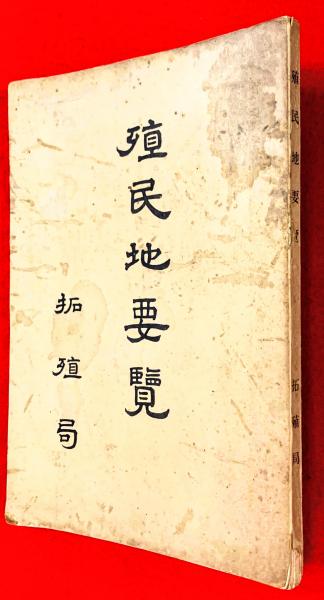 殖民地要覽
拓殖局
殖民地要覽
拓殖局